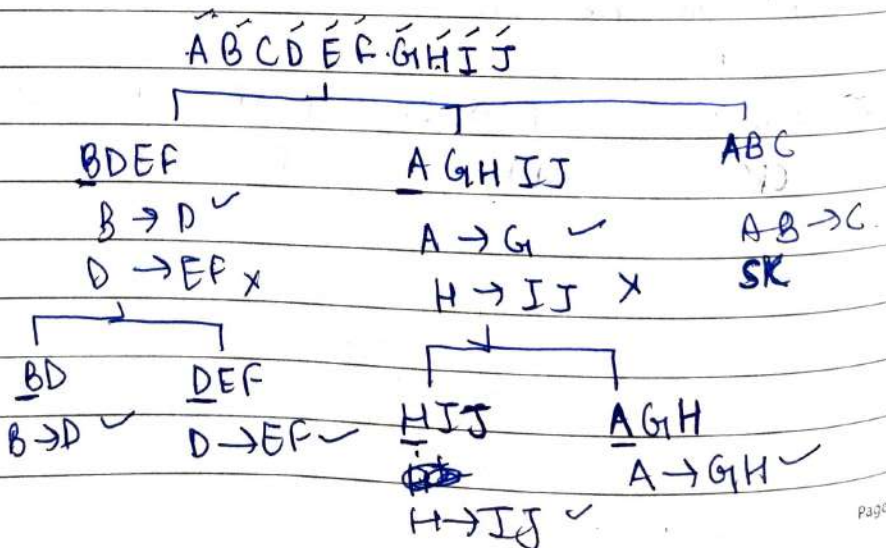 A B C D E F G H I J
BDEF A G H I J ABC
B → D ✓ A → G ✓ AB → C
D → EF × H → IJ × SK
BD DEF HIJ AGH
B → D ✓ D → EF ✓ A → GH ✓
H → IJ ✓
Page